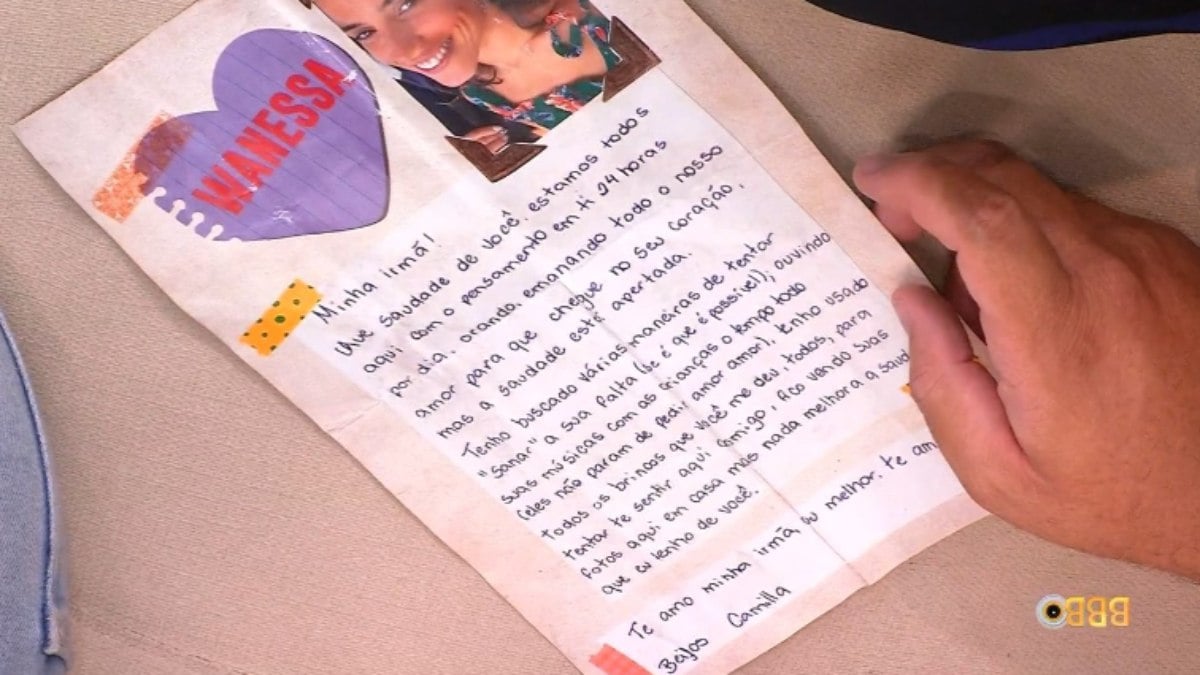 WANESSA
Minha irmã!
Que saudade de você, estamos todos
aqui com o pensamento em ti 24 horas
por dia, orando, emanando todo o nosso
amor para que chegue no seu coração,
mas a saudade está apertada.
Tenho buscado várias maneiras de tentar
"sanar" a sua falta (se é que é possível), ouvindo
suas músicas com as crianças o tempo todo
(eles não param de pedir amor amor), tenho usado
todos os brincos que você me deu, todos, para
tentar te sentir aqui comigo, fico vendo suas
fotos aqui em casa mas nada melhora a saud
que eu tenho de você.
Te amo minha irmã, melhor, te am
Beijos Camilla
BBB